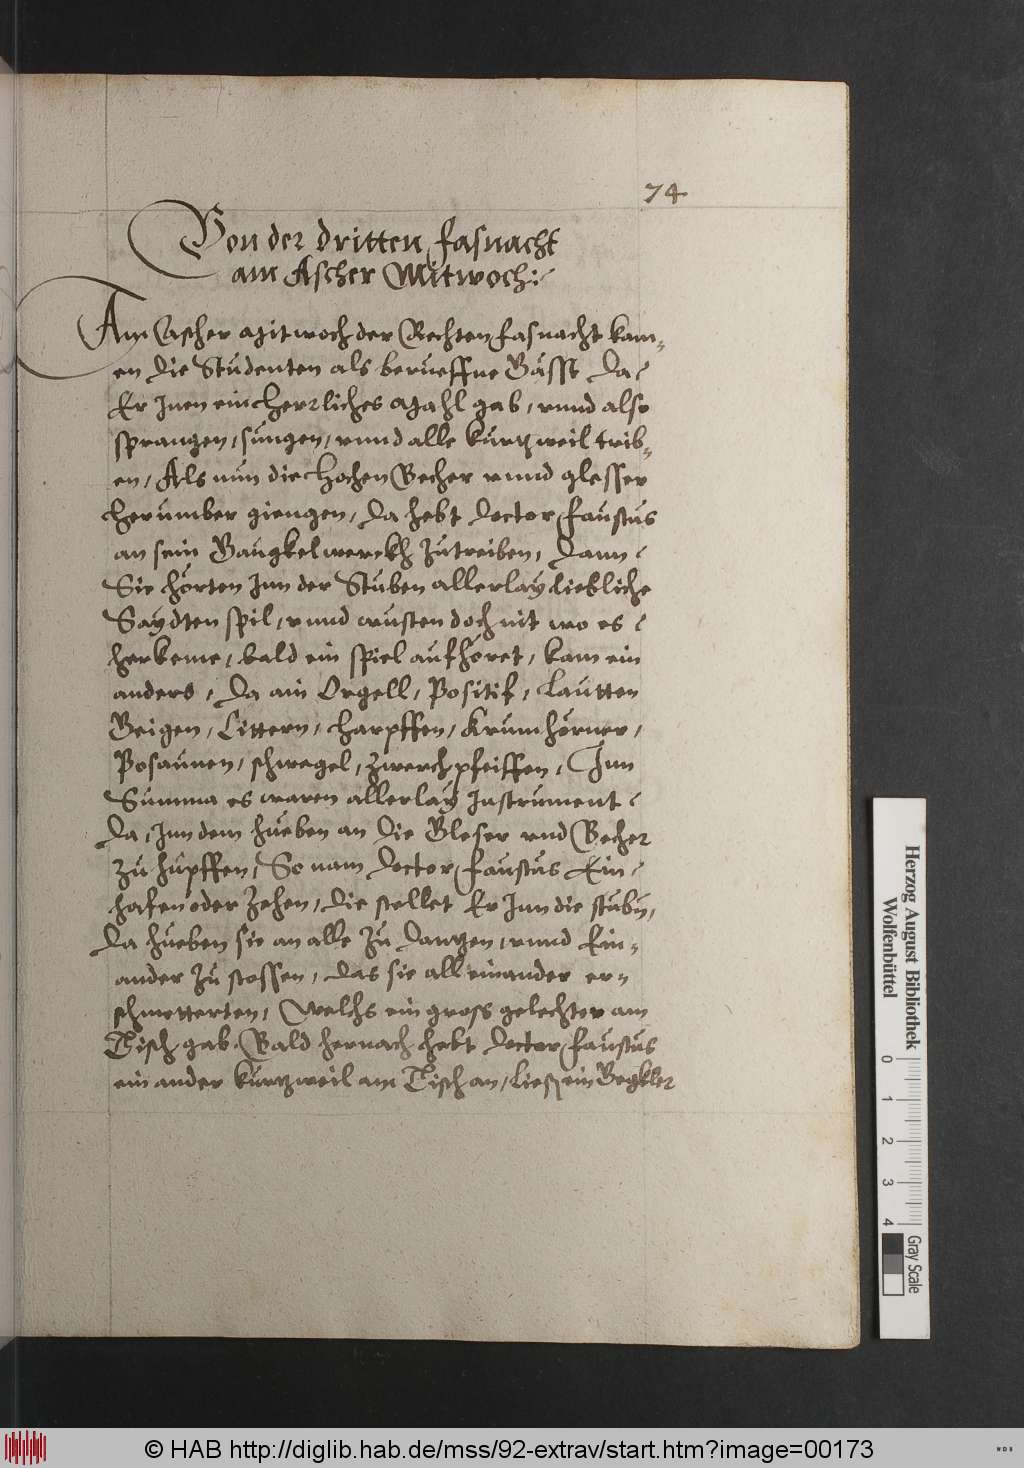 74
Von der dritten fasnacht
am Ascher Mitwoch:
Am Ascher Mitwoch der Rechten fasnacht kam=
en die Studenten als berueffne Gässt da
Er Inen ein herrliches Mahl gab, vnnd also
sprangen, sungen, vnnd alle kurtzweil trib=
en, Als nun die hochen Becher vnnd glesser
herumber giengen, da hebt doctor faustus
an sein Gaugkelwerckh zutreiben, dann
Sie hörten Inn der Stuben allerlay liebliche
Saydten spil, vnnd wusten doch nit wo es
herkeme, bald ein spiel aufhöret, kam ein
anders, da ain Orgell, Positif, Lautten
Geigen, Cittern, harpffen, Krumhörner,
Posaunen, schwegel, zwerchpfeiffen, Inn
Summa es waren allerlay Instrument
da, Inn dem hueben an die Gleser vnd Becher
zu hupffen, So nam doctor faustus Ein
hafen oder zehen, die stellet Er Inn die stubn,
da hueben sie an alle zu dantzen, vnnd Ein=
ander zu stossen, das sie all einander er=
schmetterten, Welchs ein gross gelechter am
Tisch gab. Bald hernach hebt doctor faustus
ein ander kurtzweil am Tisch an, liess ein Gogkler
Herzog August Bibliothek
Wolfenbüttel
0 1 2 3 4
Gray Scale
© HAB http://diglib.hab.de/mss/92-extrav/start.htm?image=00173
WDB